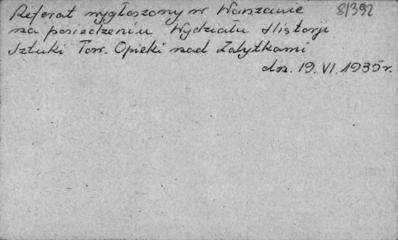 Referat wygłoszony w Warszawie 8/392
na posiedzeniu Wydziału Historji
Sztuki Tow. Opieki nad Zabytkami
dn. 19. VI. 1935 r.